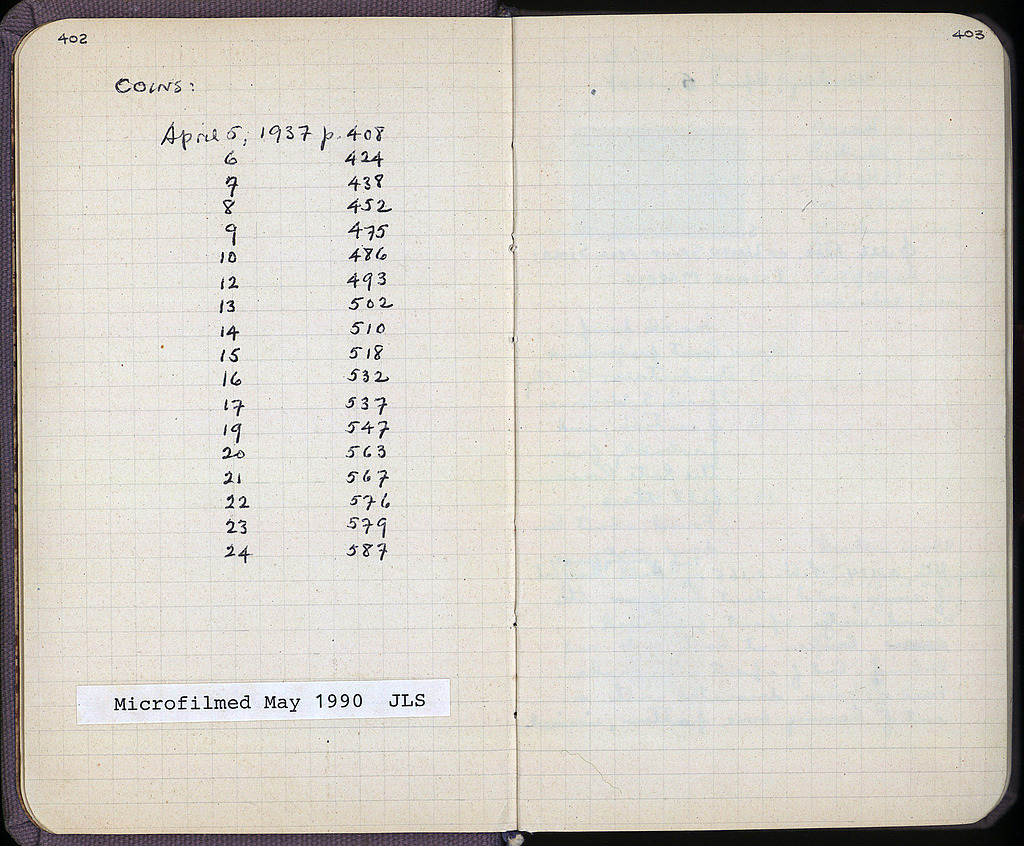 402
COINS:
April 5, 1937 p. 408
6 424
7 438
8 452
9 475
10 486
12 493
13 502
14 510
15 518
16 532
17 537
19 547
20 563
21 567
22 576
23 579
24 587
Microfilmed May 1990 JLS
403